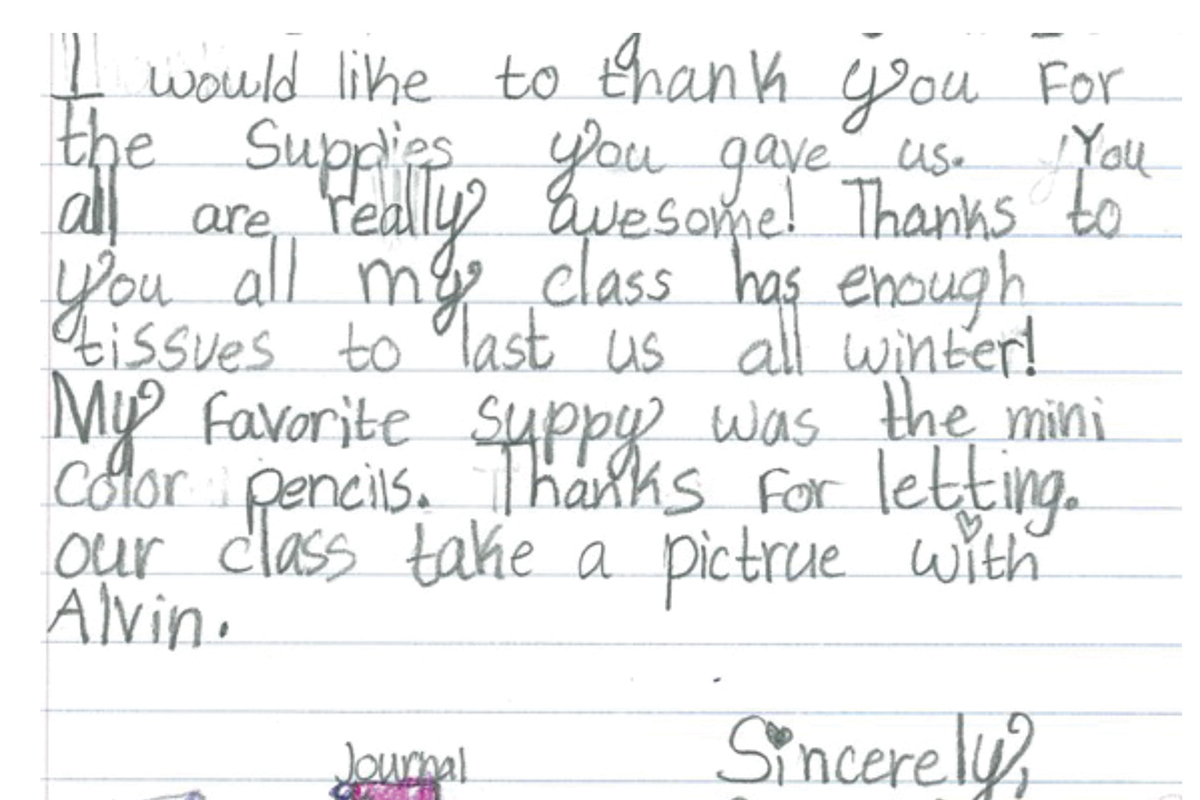 I would like to thank you For
the Supplies you gave us. You
all are really awesome! Thanks to
you all my class has enough
tissues to last us all winter!
My favorite suppy was the mini
color pencils. Thanks For letting.
our class take a pictrue with
Alvin.
Journal
Sincerely,